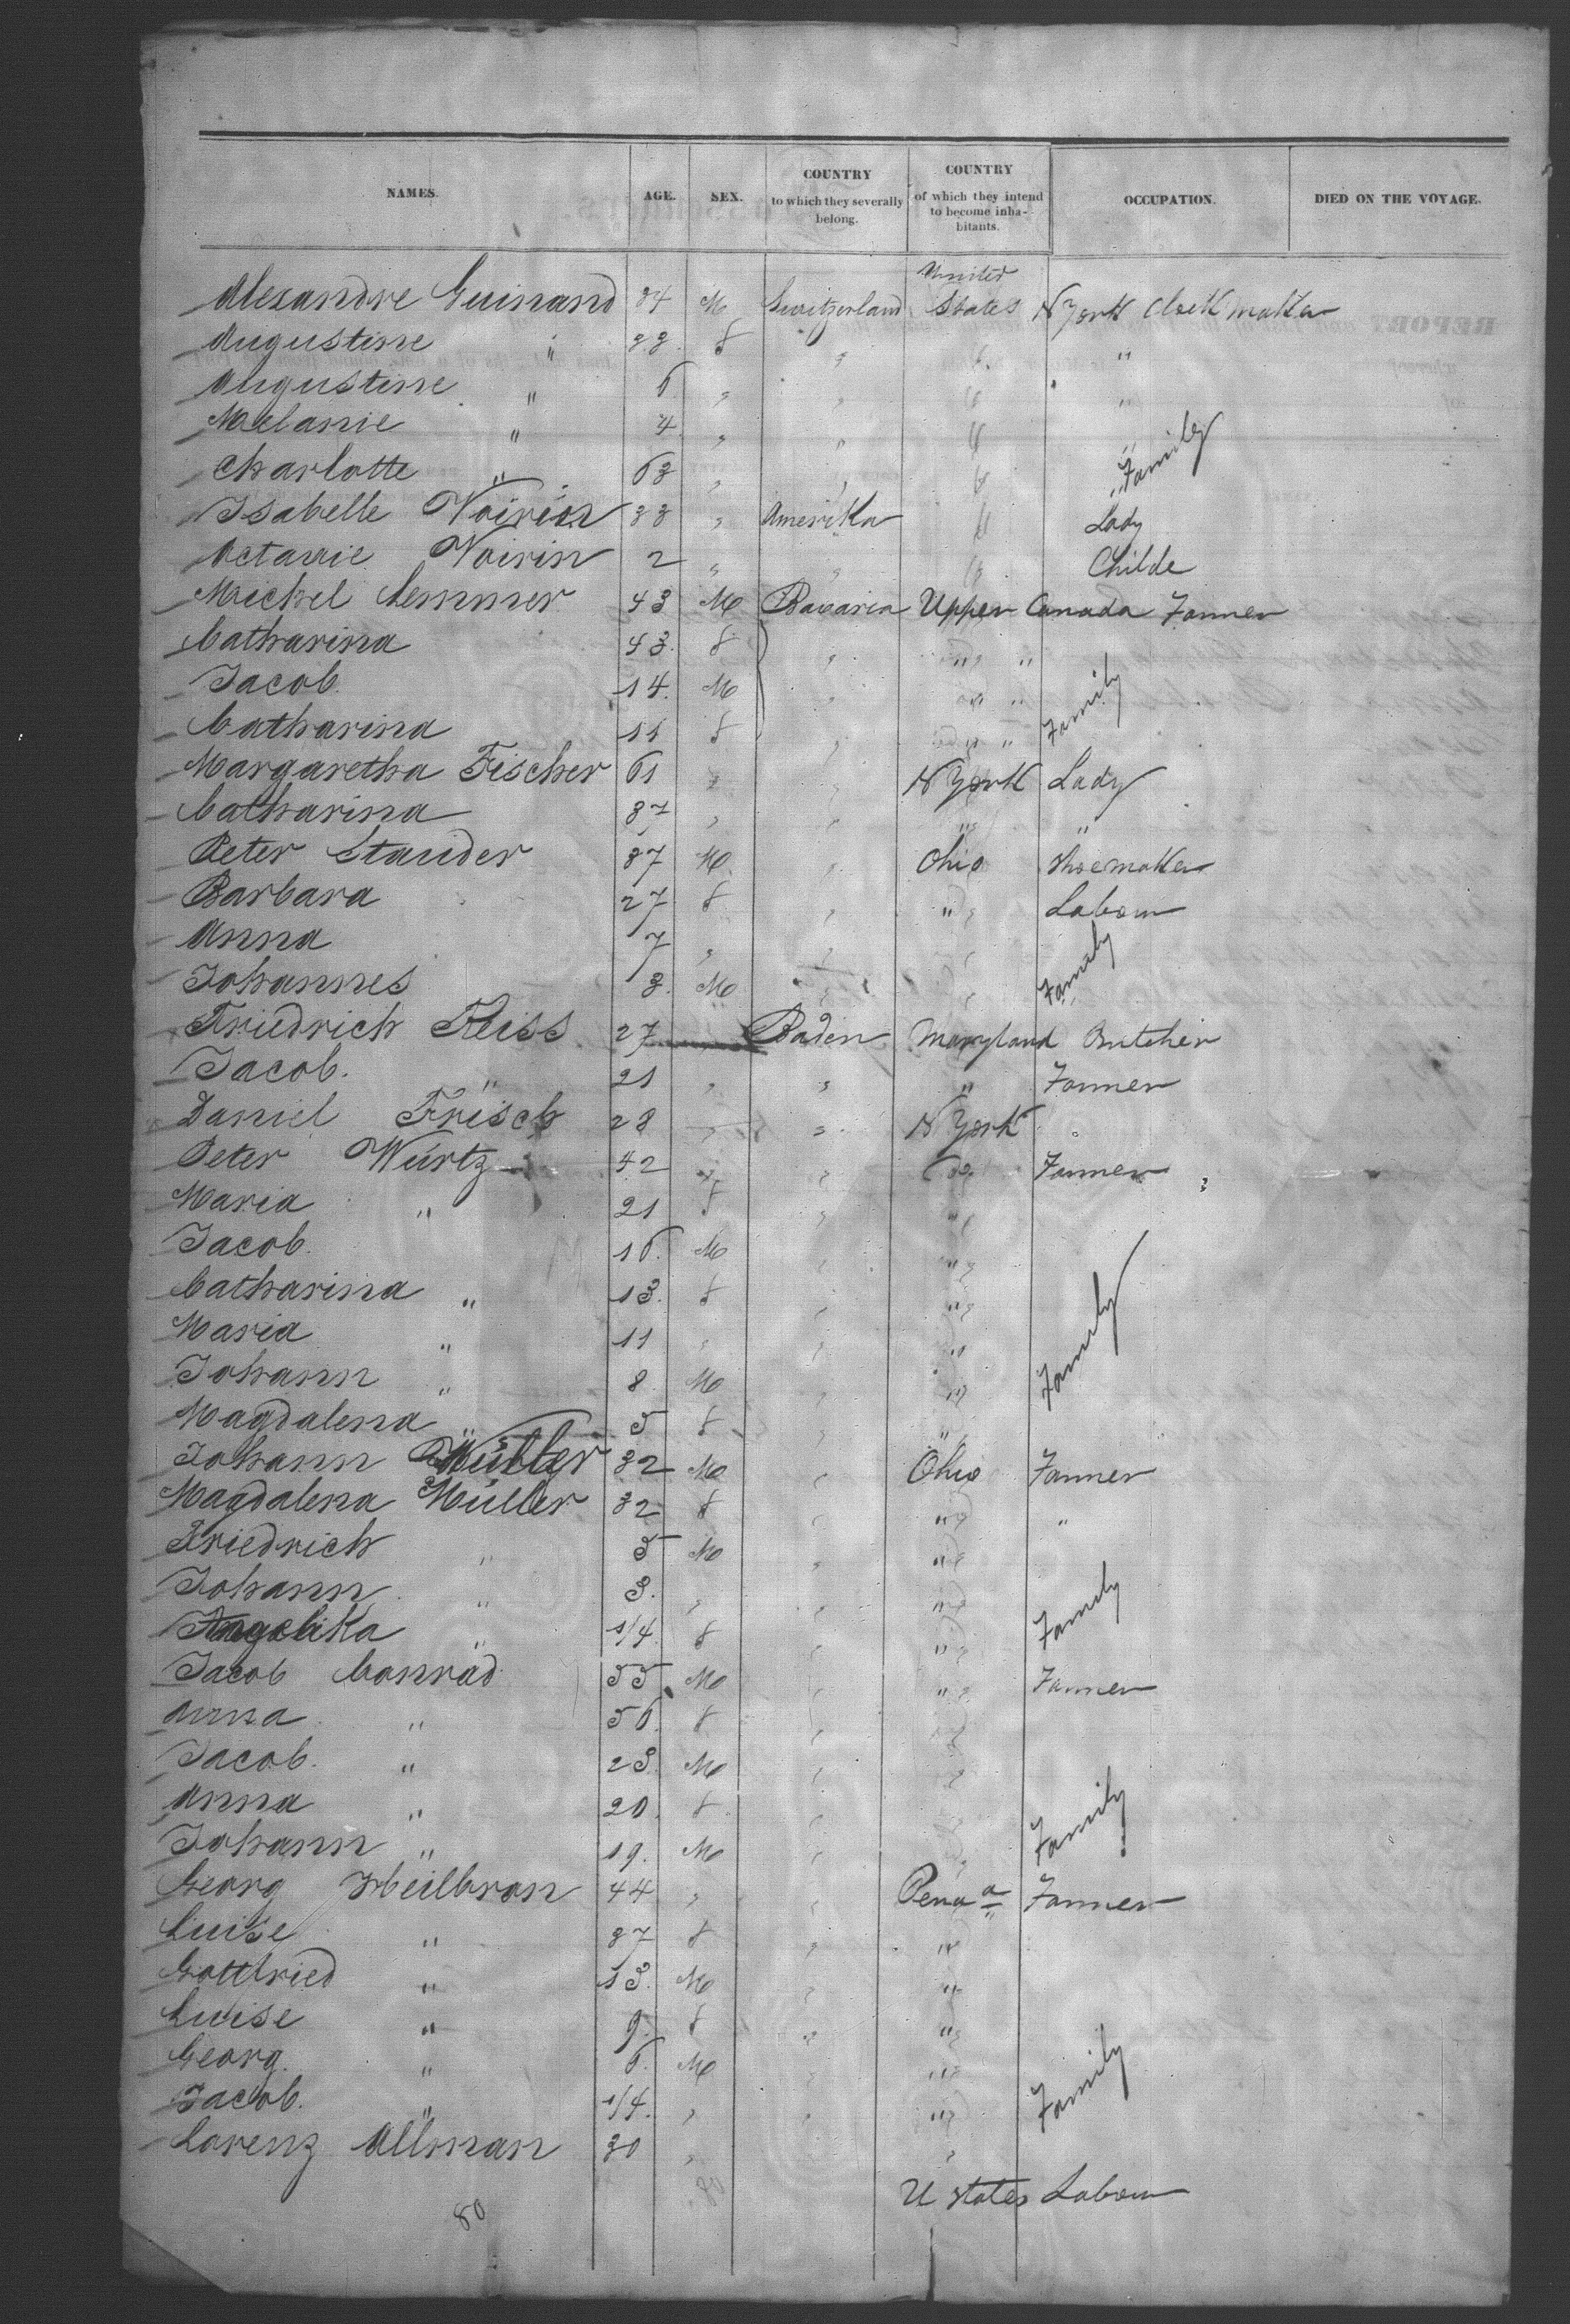 NAMES. AGE. SEX. COUNTRY to which they severally belong. COUNTRY of which they intend to become inhabitants. OCCUPATION. DIED ON THE VOYAGE.
Alexandre Guinand 34 M Switzerland United States N York Clockmaker
Augustine " 33 f " " "
Augustine " 6 " " " "
Melanie " 4 " " " "
Charlotte " 63 " " " " Family
Isabelle Voirin 33 " Amerika " Lady
Octavie Voirin 2 " " " Childe
Michel Lemmer 43 M Bavaria Upper Canada Farmer
Catharina 43 f " " "
Jacob 14 M " " "
Catharina 11 f " " " Family
Margaretha Fischer 61 " " N York Lady
Catharina 37 " " " "
Peter Stauder 37 M " Ohio Shoemaker
Barbara 27 f " " Labour
Anna 7 " " "
Johannes 3 M " " Family
Friedrich Fleiss 27 Baden Maryland Butcher
Jacob " 21 " " " Farmer
Daniel Frisch 28 " " N York
Peter Würtz 42 " " " Farmer
Maria " 21 f " "
Jacob 16 M " "
Catharina " 13 f " "
Maria " 11 " " "
Johann " 8 M " " Family
Magdalena " 5 f " "
Johann Müller 32 M " Ohio Farmer
Magdalena Müller 32 f " " "
Friedrich " 5 M " "
Johann " 3 " " "
Angelika " 1/4 f " " Family
Jacob Conrad 55 M " " Farmer
Anna " 56 f " "
Jacob " 23 M " "
Anna " 20 f " "
Johann " 19 M " " Family
Georg Heilbron 44 " " Penna Farmer
Luise " 37 f " "
Gottfried " 13 M " "
Luise " 9 f " "
Georg " 6 M " "
Jacob " 1/4 " " " Family
Lorenz Allman 30 " "
U States Labour
80